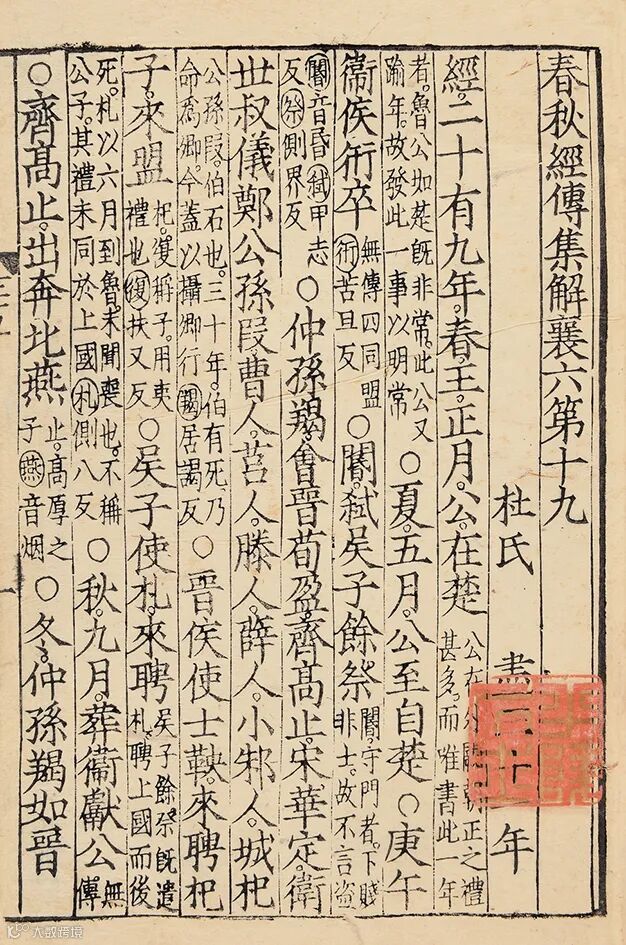 春秋經傳集解襄六第十九
杜氏 盡十年
經。二十有九年。春王。正月。公。在楚 公在外闕朝正之禮甚多。而唯書此一年
者。魯公如楚。旣非常。此公又踰年。故發此一事以明常 ○夏。五月。公至自楚 ○庚午
衞侯衎卒 無傳四同盟衎苦旦反 ○閽。弑吳子餘祭 閽。守門者。下賤非士。故不言盗
閽音昏弑申志反祭側界反 ○仲孫羯。會晉荀盈。齊髙止。宋華定。衞
丗叔儀鄭公孫段曹人。莒人。滕人。薛人。小邾人。城杞
公孫段。伯石也。三十年。伯有死。乃命爲卿。今蓋以攝卿行羯居謁反 ○晉侯使士鞅。來聘杞
子。來盟 杞。復稱子。用夷禮也復扶又反 ○吳子使札。來聘 吳子餘祭旣遣札聘上國而後
死。札以六月到魯。未聞喪也。不稱公子。其禮未同於上國札側八反 ○秋。九月。葬衞獻公 無傳
○齊髙止。出奔北燕 止。髙厚之子燕音烟 ○冬。仲孫羯如晉
大数跨境